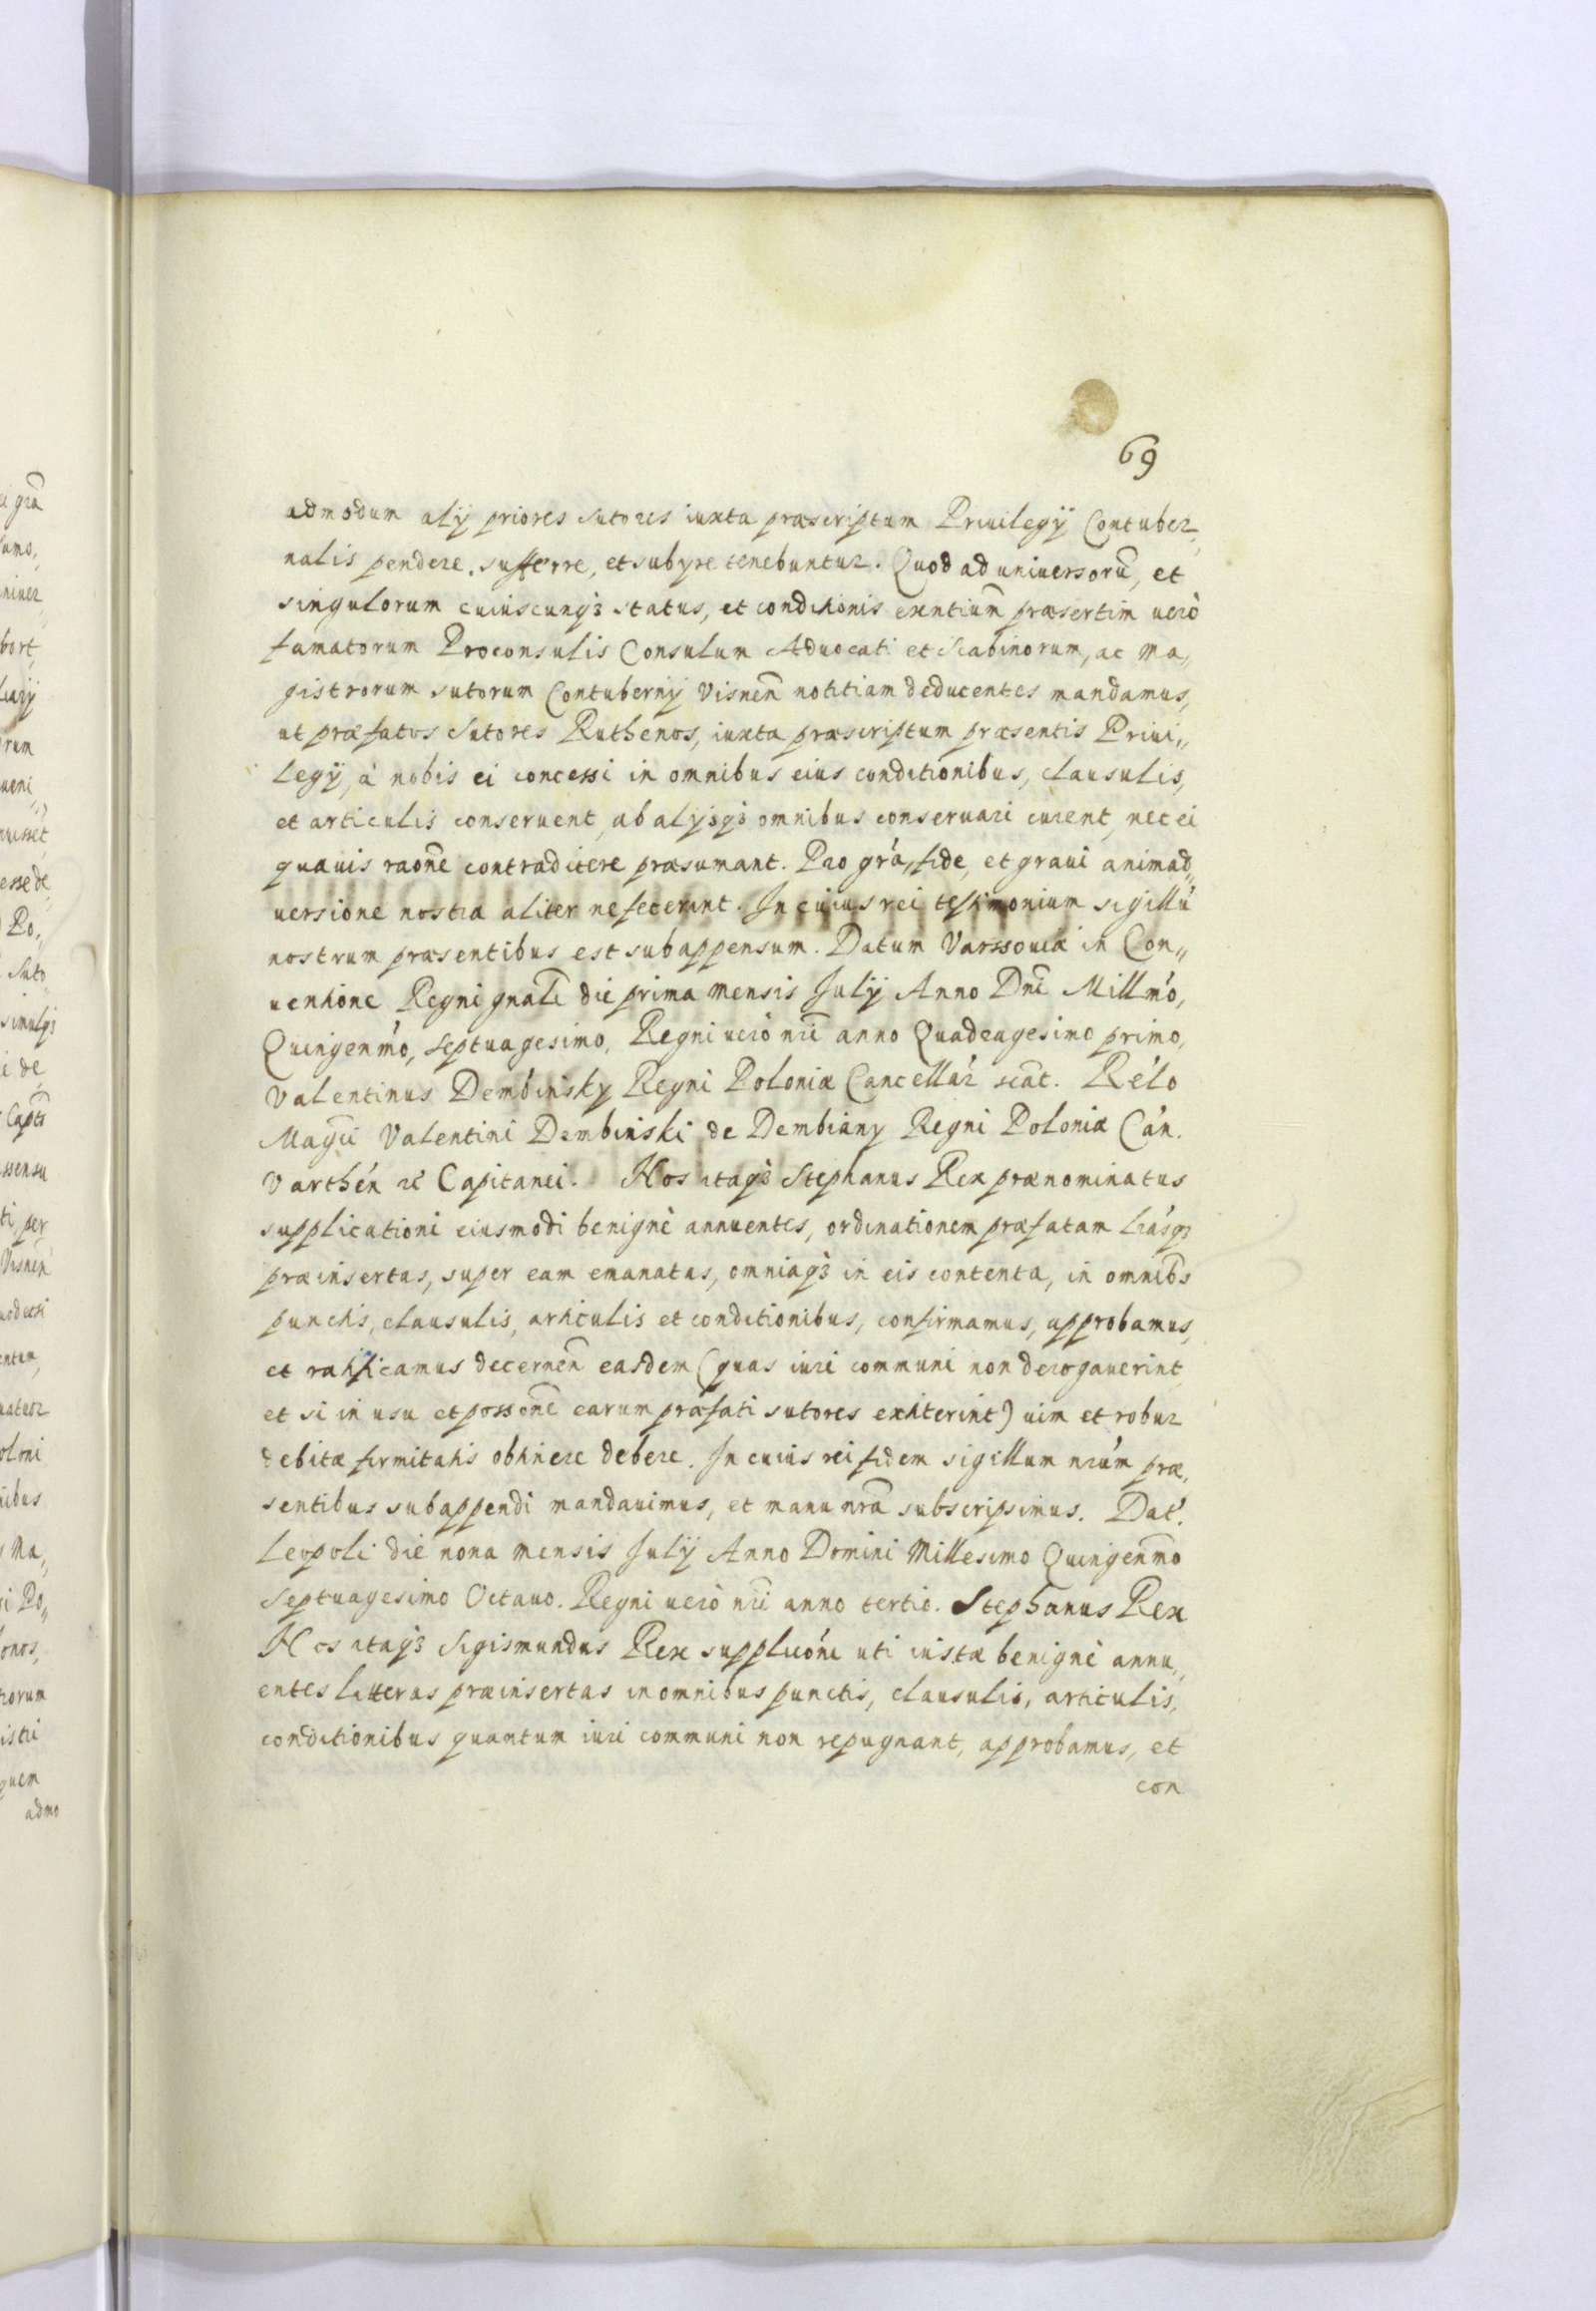 69
admodum alÿ priores sutores iuxta præscriptum Priuilegÿ Contuber„
nalis pendere, sufferre, et subyre tenebuntur. Quod ad uniuersorū, et
singulorum cuiuscunqꝫ status, et conditionis exñtium præsertim uerò
famatorum Proconsulis Consulum Aduocati et Scabinorum, ac Ma„
gistrorum sutorum Contubernÿ Visneñ notitiam deducentes mandamus,
ut præfatos Sutores Ruthenos, iuxta præscriptum præsentis Priui„
legÿ, à nobis ei concessi in omnibus eius conditionibus, clausulis,
et articulis conseruent, ab alÿsqꝫ omnibus conseruari curent, nec ei
quauis raõne contradicere præsumant. Pro grá, fide, et graui animad„
uersione nostra aliter ne fecerint. In cuius rei testimonium sigillū
nostrum præsentibus est subappensum. Datum Varssouiæ in Con„
uentione Regni gnãli die prima mensis Julÿ Anno Dñi Millmó,
Quingenmó, septuagesimo, Regni uerò nr̃i anno Quadragesimo primo,
Valentinus Dembinsky Regni Poloniæ Cancellár scãt. Rélo
Magci Valentini Dembinski de Dembiany Regni Poloniæ Cán.
Varthén ac Capitanei. Nos itaqꝫ Stephanus Rex prænominatus
supplicationi eiusmodi benignè annuentes, ordinationem præfatam lrásqꝫ
præinsertas, super eam emanatas, omniaqꝫ in eis contenta, in omnibs
punctis, clausulis, articulis et conditionibus, confirmamus, approbamus,
et ratificamus decerneñ easdem (quas iuri communi non derogauerint
et si in usu et possoñe earum præfati sutores extiterint) uim et robur
debitæ firmitatis obtinere debere. In cuius rei fidem sigillum nrúm præ„
sentibus subappendi mandauimus, et manu nr̃a subscripsimus. Dat.
Leopoli die nona mensis Julÿ Anno Domini Millesimo Quingenm̃o
septuagesimo Octauo. Regni uerò nr̃i anno tertio. Stephanus Rex
Nos itaqꝫ Sigismundus Rex supplicóni uti iustæ benignè annu„
entes litteras præinsertas in omnibus punctis, clausulis, articulis,
conditionibus quantum iuri communi non repugnant, approbamus, et
con